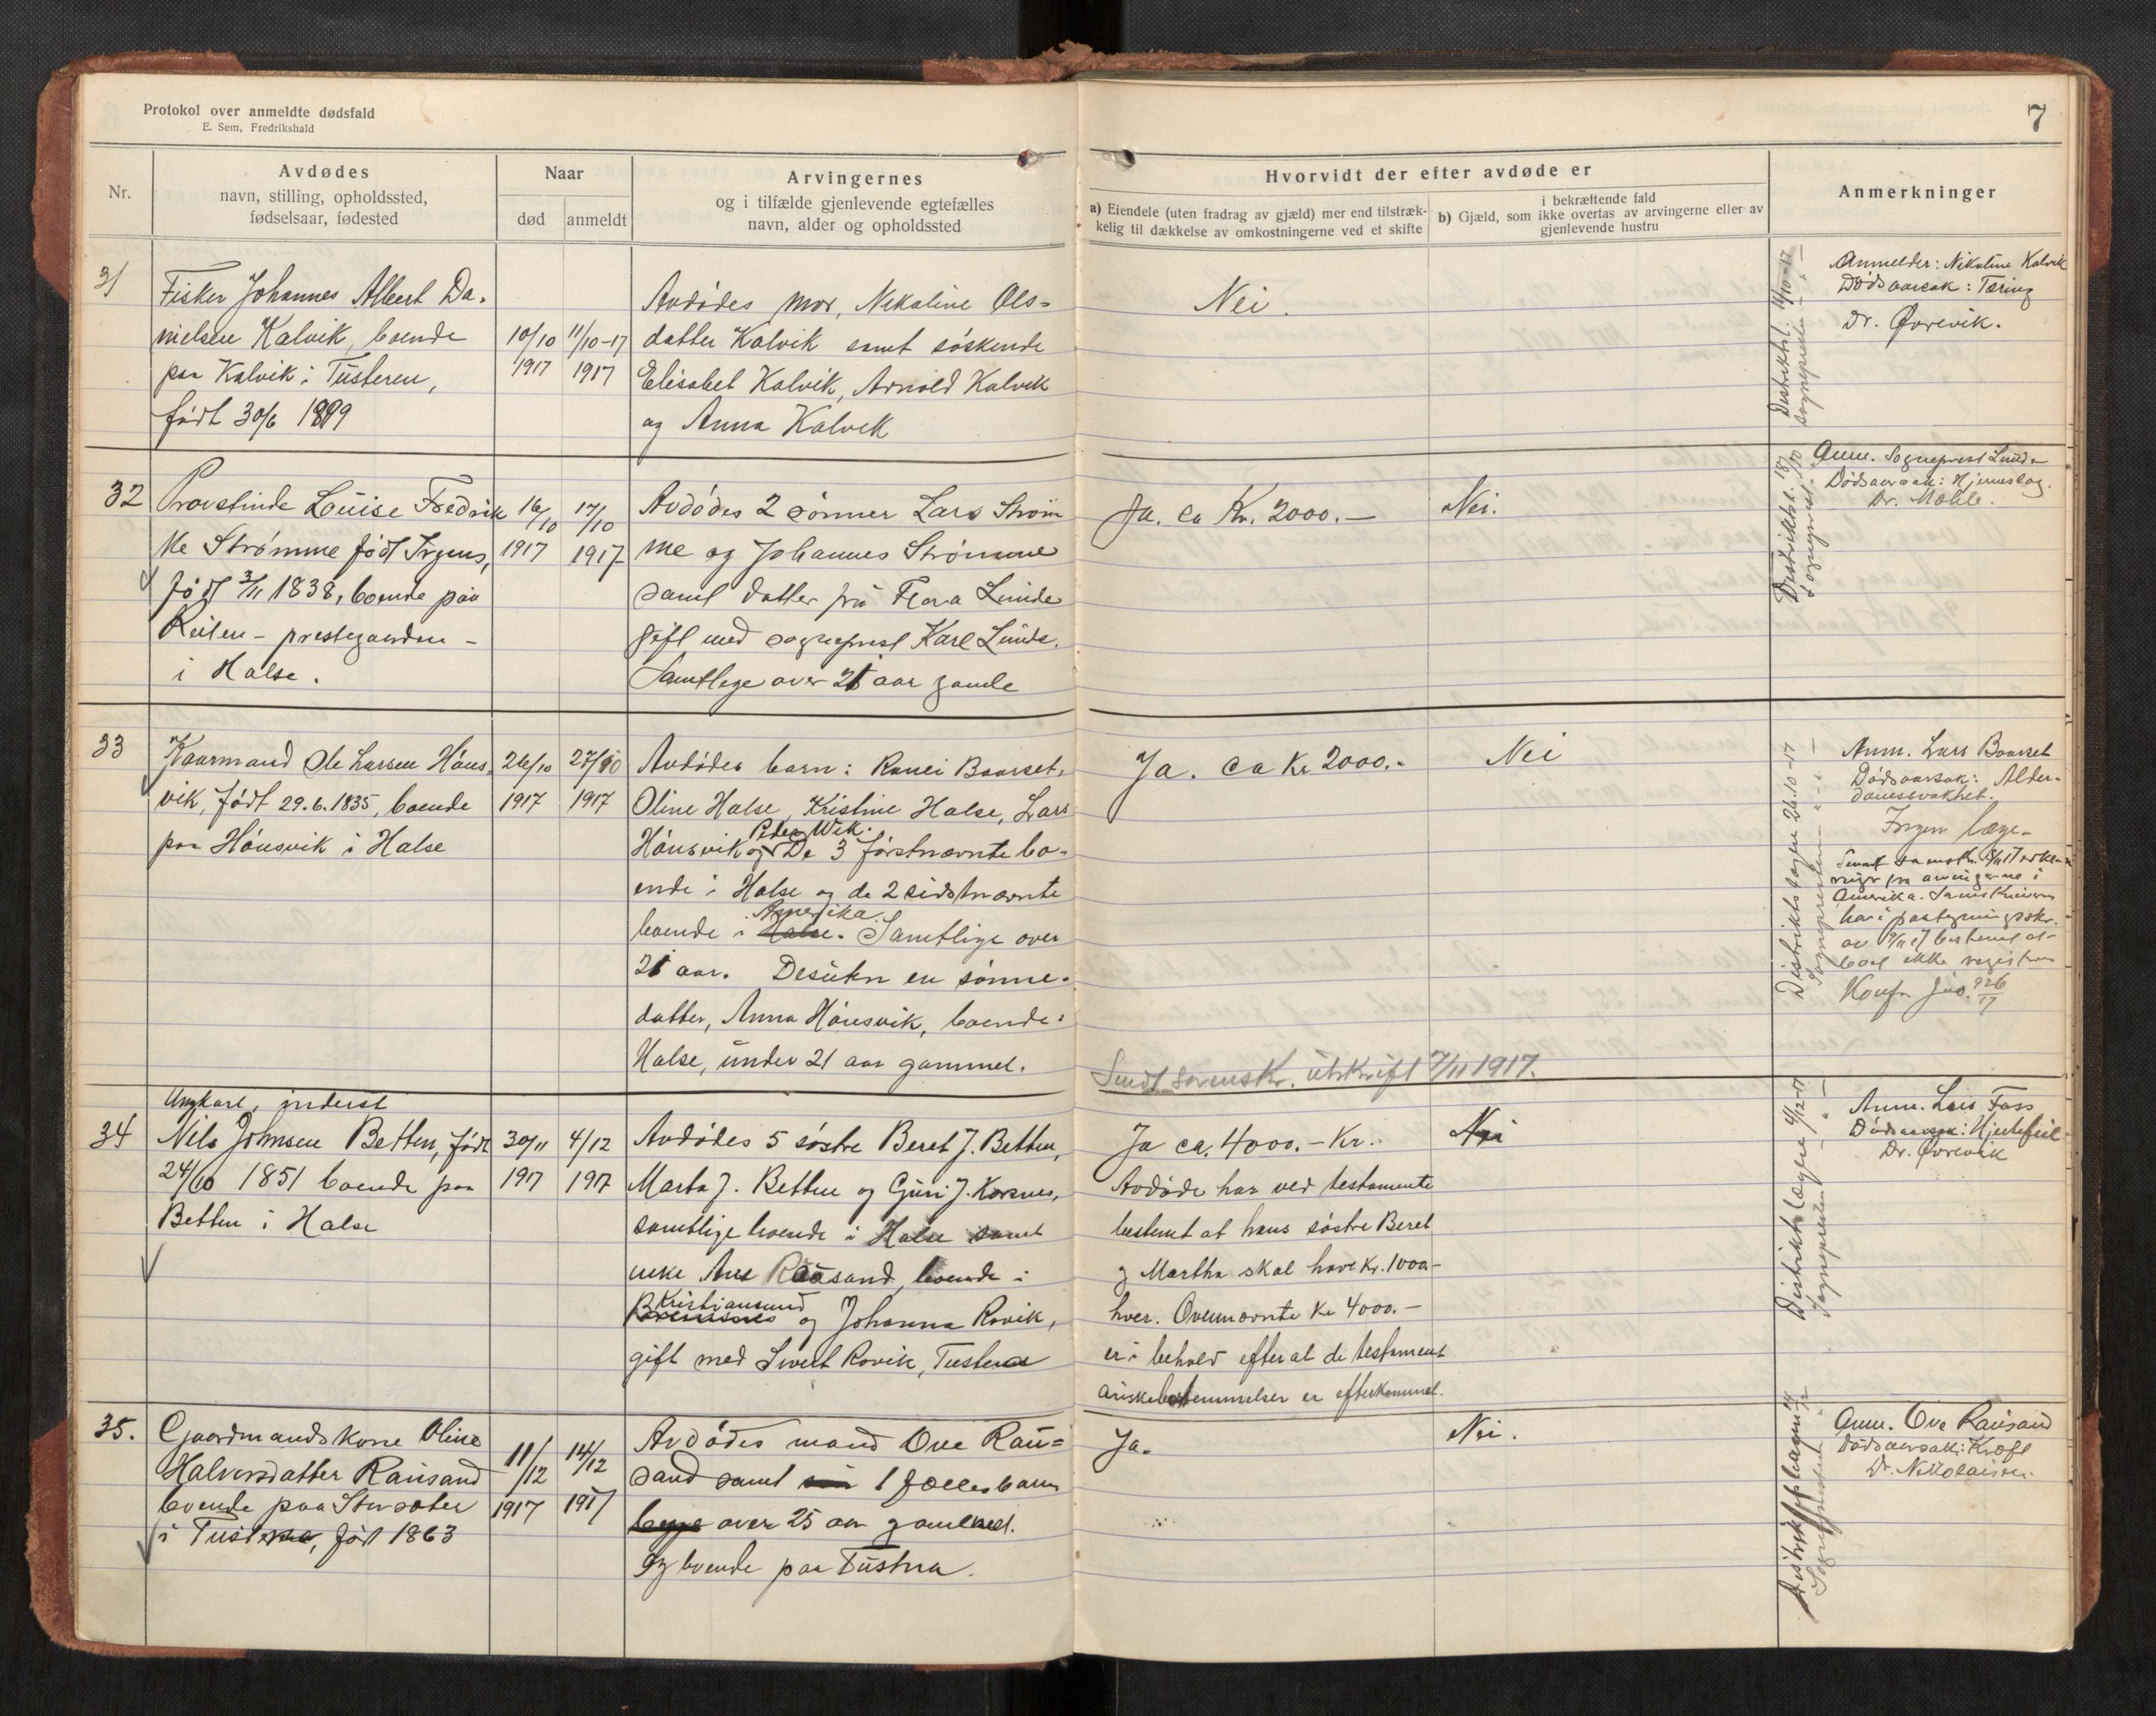 Protokol over anmeldte dødsfald
E. Sem, Fredrikshald
7
Nr.
Avdødes
navn, stilling, opholdssted,
fødselsaar, fødested
Naar
død
anmeldt
Arvingernes
og i tilfælde gjenlevende egtefælles
navn, alder og opholdssted
Hvorvidt der efter avdøde er
a) Eiendele (uten fradrag av gjæld) mer end tilstræk-
kelig til dækkelse av omkostningerne ved et skifte
i bekræftende fald
b) Gjæld, som ikke overtas av arvingerne eller av
gjenlevende hustru
Anmerkninger
31
Fisker Johannes Albert Da-
nielsen Kalvik, boende
paa Kalvik i Tusteren,
født 30/6 1899
10/10
1917
11/10-17
1917
Avdødes mor, Nikoline Ols-
datter Kalvik samt søskende
Elisabet Kalvik, Arnold Kalvik
og Anna Kalvik
Nei.
Distriktsl. 11/10-17
Sognepresten
Anmelder: Nikoline Kalvik
Dødsaarsak: Tæring
Dr. Øvrevik.
32
Provstinde Louise Fredrik
ke Strømme født Irgens,
født 3/11 1838, boende paa
Reilen - prestegaarden -
i Halse.
16/10
1917
17/10
1917
Avdødes 2 sønner Lars Strøm
me og Johannes Strømme
samt datter fru Flora Linde
gift med sogneprest Karl Linde.
Samtlige over 21 aar gamle
Ja. ca Kr. 2000.-
Nei.
Distriktsl. 18/10
Sognepr.
Anm. Sogneprest Linde
Dødsaarsak: Hjerneslag.
Dr. Møhle.
33
Kaarmand Ole Larsen Høns-
vik, født 29.6.1835, boende
paa Hønsvik i Halse
26/10
1917
27/10
1917
Avdødes barn: Ranei Baarset,
Oline Halse, Kristine Halse, Lars
Peder Wik.
Hønsvik og De 3 førstnævnte bo-
ende i Halse og de 2 sidstnævnte
Amerika
boende i Halse. Samtlige over
21 aar. Desuten en sønne-
datter, Anna Hønsvik, boende i
Halse, under 21 aar gammel.
Ja. ca Kr 2000.-
Nei
Sendt sorenskr. utskrift 7/11 1917.
Distriktslægen 26.10-17
Sognepresten
Anm. Lars Baarset
Dødsaarsak: Alder-
domssvakhet.
Irgen læge
Amerika. Sorenskriveren
har i paategningsskr.
boet ikke registreres
Konf. Jno. 926/17
34
Ungkarl, inderst
Nils Johnsen Betten, født
24/10 1851 boende paa
Betten i Halse
30/11
1917
4/12
1917
Avdødes 5 søstre Beret J. Betten,
Marta J. Betten og Guri J. Korsnes,
samtlige boende i Halse samt
enke Ane Rausand, boende i
Kristiansund
Bremsnes og Johanna Rovik,
gift med Sivert Rovik, Tusteren
Ja ca. 4000.- Kr.
Avdøde har ved testamente
bestemt at hans søstre Beret
og Martha skal have Kr. 1000.-
hver. Ovennævnte Kr 4000.-
er i behold efter at de testament
ariske bestemmelser er efterkommet.
Nei
Distriktslægen 4/12-17
Sognepresten
Anm. Lars Foss
Dødsaarsak: Hjertefeil
Dr. Øvrevik
35.
Gaardmandskone Oline
Halvorsdatter Rausand
boende paa Storsæter
i Tusteren, født 1863
11/12
1917
14/12
1917
Avdødes mand Ove Rau=
sand samt 1 fællesbarn
begge over 25 aar gammel.
og boende paa Tustna.
Ja.
Nei.
Distriktslægen 14/12
Sognepresten
Anm. Ove Rausand
Dødsaarsak: Kræft
Dr. Nikolaisen.